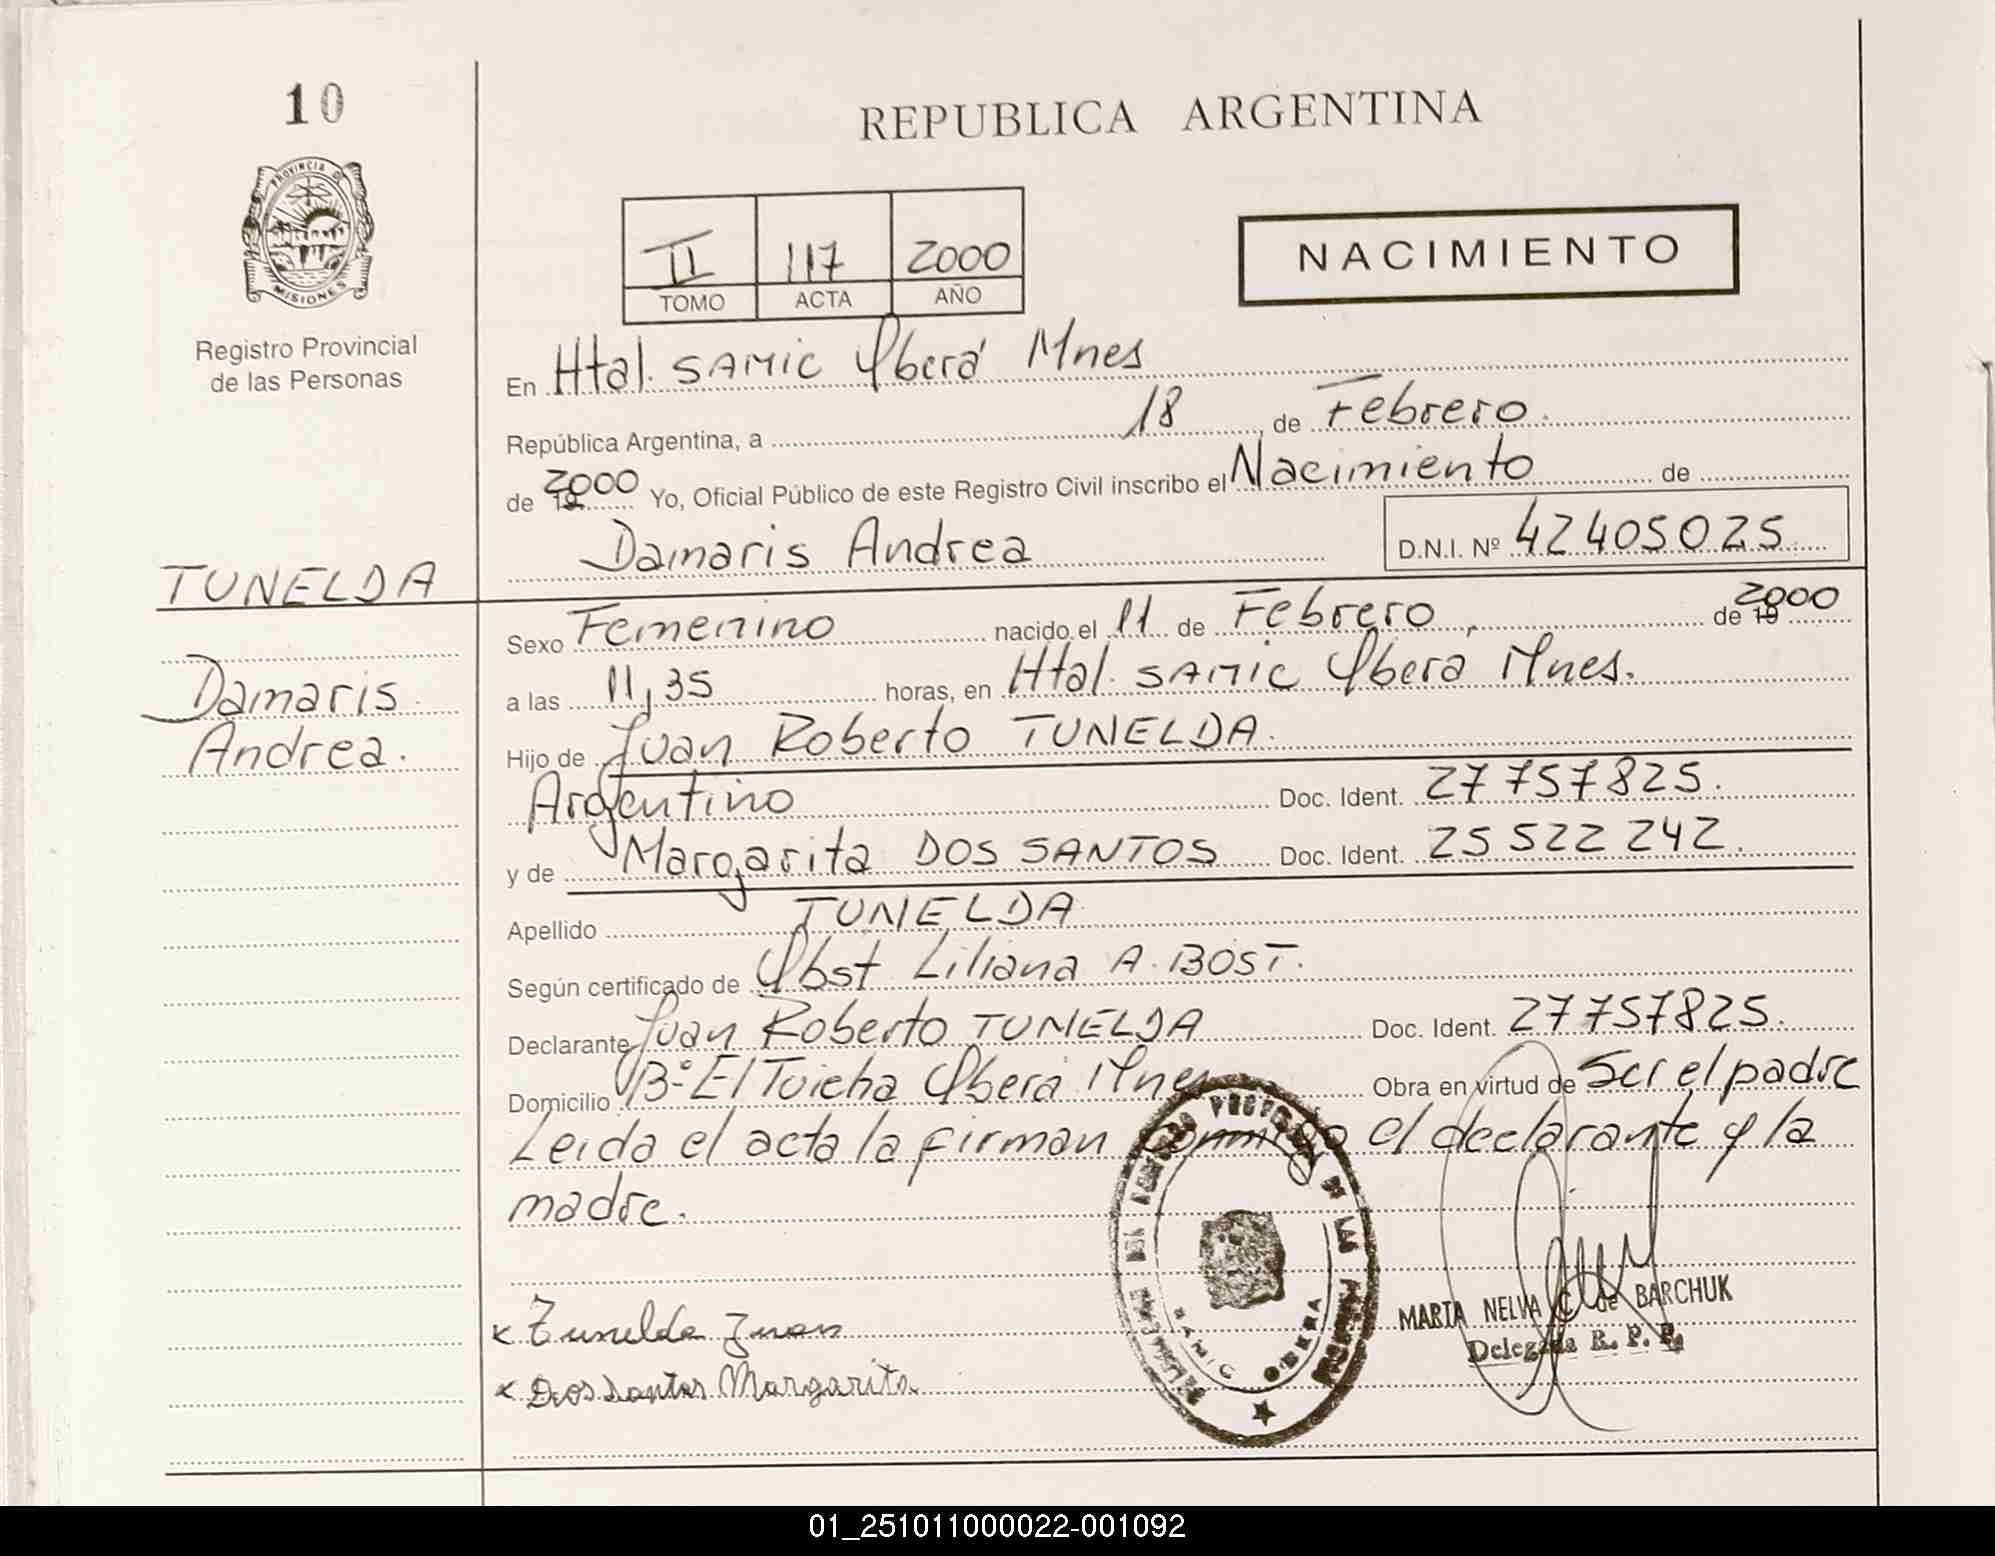 10
REPUBLICA ARGENTINA
PROVINCIA DE
MISIONES
Registro Provincial
de las Personas
II 117 2000
TOMO ACTA AÑO
NACIMIENTO
En Htal. SAMIC Yberá Mnes
República Argentina, a 18, de Febrero.
de 19 2000 Yo, Oficial Público de este Registro Civil inscribo el Nacimiento de
Damaris Andrea D.N.I. Nº 42405025
TUNELDA
Damaris
Andrea.
Sexo Femenino nacido el 11 de Febrero, de 19 2000
a las 11,35 horas, en Htal. SAMIC Yberá Mnes.
Hijo de Juan Roberto TUNELDA.
Argentino Doc. Ident. 27 757 825.
y de Margarita DOS SANTOS Doc. Ident. 25 522 242.
Apellido TUNELDA
Según certificado de Obst Liliana A. BOST.
Declarante Juan Roberto TUNELDA Doc. Ident. 27757825.
Domicilio Bº El Tuicha Yberá Mnes Obra en virtud de Ser el padre
Leida el acta la firman conmigo el declarante y la
madre.
x Tunelda Juan
x Dos Santos Margarita
DEL REGISTRO DE LAS
SAMIC OBERA
MARTA NELVA C. de BARCHUK
Delegada R. P. P.
01_251011000022-001092